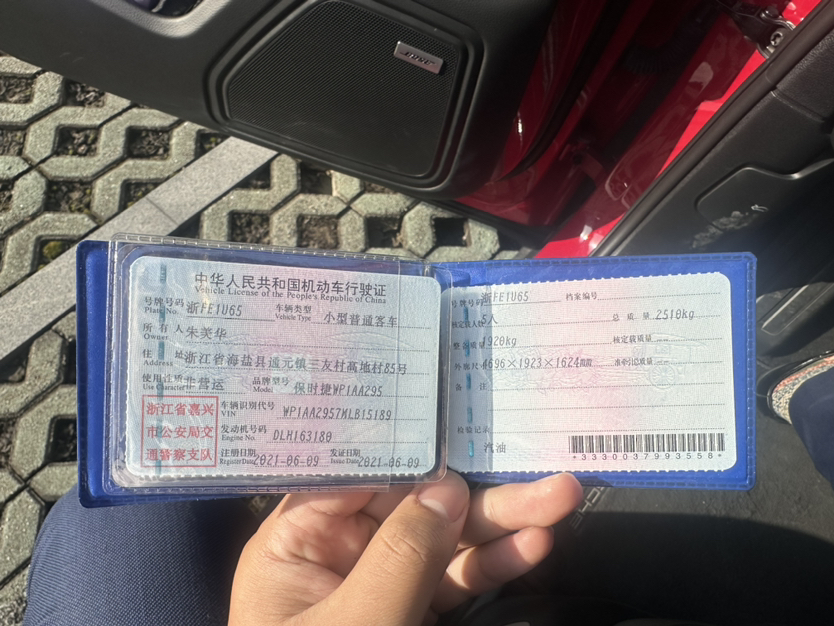 BOSE
中华人民共和国机动车行驶证
Vehicle License of the People's Republic of China
号牌号码 浙FE1U65 车辆类型 小型普通客车
Plate No. Vehicle Type
所有人 朱美华
Owner
住址 浙江省海盐县通元镇三友村高地村85号
Address
使用性质 非营运 品牌型号 保时捷WP1AA295
Use Character Model
浙江省嘉兴
市公安局交
通警察支队
车辆识别代号 WP1AA2957MLB15189
VIN
发动机号码 DLH163180
Engine No.
注册日期 2021-06-09 发证日期 2021-06-09
Register Date Issue Date
号牌号码 浙FE1U65 档案编号
核定载人数 5人 总质量 2510kg
整备质量 1920kg 核定载质量 --
外廓尺寸 4696×1923×1624mm 准牵引总质量 --
备注
检验记录
汽油
*3330037993558*